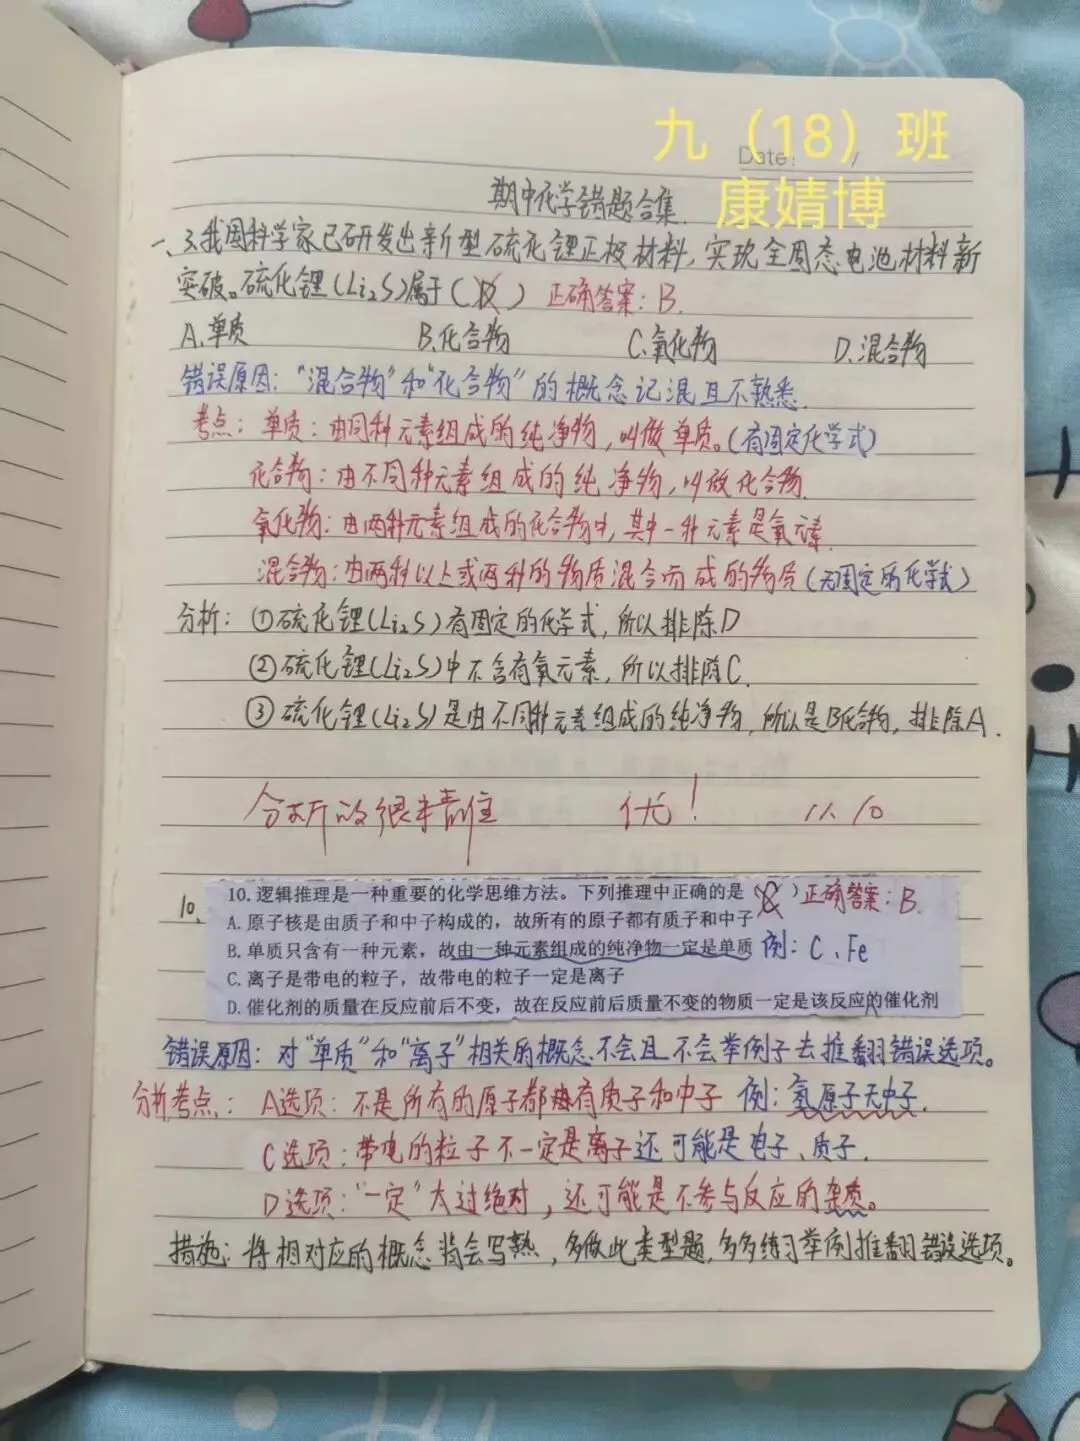 九（18）班
Date: /
康婧博
期中化学错题合集.
一、3.我国科学家已研发出新型硫化锂正极材料,实现全固态电池材料新
突破。硫化锂(Li₂S)属于( ) 正确答案: B.
A.单质 B.化合物 C.氧化物 D.混合物
错误原因:"混合物"和"化合物"的概念记混且不熟悉.
考点: 单质:由同种元素组成的纯净物,叫做单质。(有固定化学式)
化合物:由不同种元素组成的纯净物,叫做化合物.
氧化物:由两种元素组成的化合物中,其中一种元素是氧元素.
混合物:由两种以上或两种的物质混合而成的物质(无固定的化学式)
分析: ①硫化锂(Li₂S)有固定的化学式,所以排除D
②硫化锂(Li₂S)中不含有氧元素,所以排除C.
③硫化锂(Li₂S)是由不同种元素组成的纯净物,所以是B化合物,排除A.
分析的很精准 优! 11.10
10. 10.逻辑推理是一种重要的化学思维方法。下列推理中正确的是( )正确答案: B.
A.原子核是由质子和中子构成的，故所有的原子都有质子和中子
B.单质只含有一种元素，故由一种元素组成的纯净物一定是单质 例: C、Fe
C.离子是带电的粒子，故带电的粒子一定是离子
D.催化剂的质量在反应前后不变，故在反应前后质量不变的物质一定是该反应的催化剂
错误原因:对"单质"和"离子"相关的概念不会且不会举例子去推翻错误选项。
分析考点: A选项:不是所有的原子都有质子和中子 例:氢原子无中子.
C选项:带电的粒子不一定是离子还可能是电子、质子.
D选项:"一定"太过绝对,还可能是不参与反应的杂质。
措施:将相对应的概念背会写熟,多做此类型题,多多练习举例推翻错误选项。